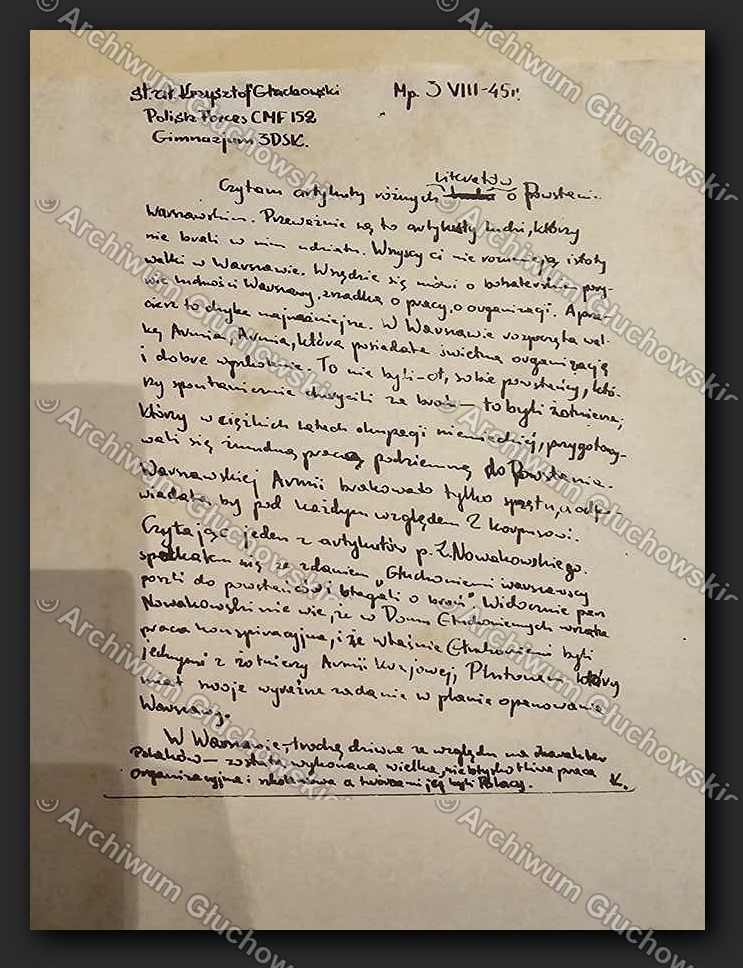 st. strz. Krzysztof Głuchowski Mp. 3 VIII-45r.
Polish Forces CMF 152
Gimnazjum 3DSK.
literatów
Czytam artykuły różnych o Powstani-
Warszawskim. Przeważnie są to artykuły ludzi, którzy
nie brali w nim udziału. Wszyscy ci nie rozumieją istoty
walki w Warszawie. Wszędzie się mówi o bohaterskim pory-
wie ludności Warszawy, rzadko o pracy, o organizacji. A prze-
cież to chyba najważniejsze. W Warszawie rozpoczęła wal-
kę Armia, Armia, która posiadała świetną organizację
i dobre wyszkolenie. To nie byli-ot, sobie powstańcy, któ-
rzy spontanicznie chwycili za broń — to byli żołnierze,
którzy w ciężkich latach okupacji niemieckiej, przygotowy-
wali się żmudną pracą podziemną do Powstania.
Warszawskiej Armii brakowało tylko sprzętu, a odpo-
wiadała by pod każdym względem 2 korpusowi.
Czytając jeden z artykułów p. Z. Nowakowskiego.
spotkałem się ze zdaniem „Głuchoniemi warszawscy
poszli do powstańców i błagali o broń". Widocznie pan
Nowakowski nie wie, że w Domu Głuchoniemych wrzała
praca konspiracyjna, i że właśnie Głuchoniemi byli
jednymi z żołnierzy Armii Krajowej, Plutonem który
miał swoje wyraźne zadanie w planie opanowania
Warszawy.
W Warszawie — trochę dziwne ze względu na charakter
Polaków — została wykonana wielka, niebłyskotliwa praca
organizacyjna i szkoleniowa a twórcami jej byli Polacy. K.
© Archiwum Głuchowskich